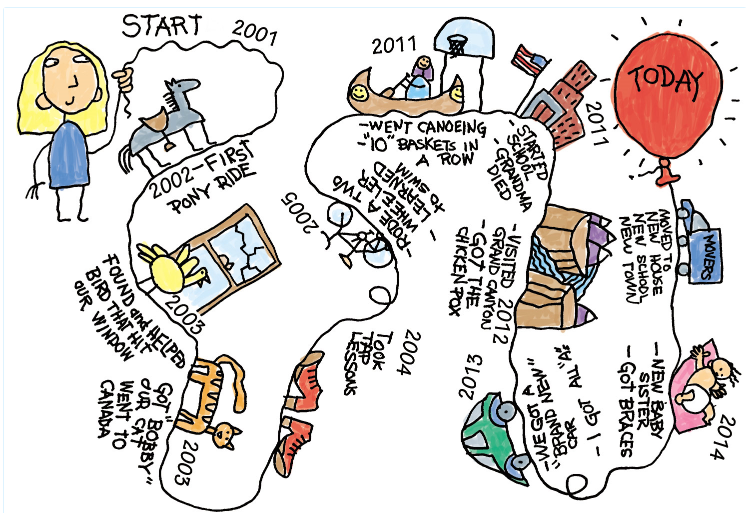 START
2001
2002-FIRST
PONY RIDE
2003
FOUND and HELPED
BIRD THAT HIT
OUR WINDOW
GOT BOBBY"
OUR CAT
WENT TO
CANADA
2003
2004
TOOK
TAP
LESSONS
2005
-RODE A TWO
WHEELER
- LEARNED
TO SWIM
2011
-WENT CANOEING
-"10" BASKETS IN
A ROW
2011
- STARTED
SCHOOL
- GRANDMA
DIED
2012
- VISITED
GRAND CANYON
- GOT THE
CHICKEN POX
2013
-WE GOT A
"BRAND NEW"
CAR
- I GOT ALL "A"s
2014
- NEW BABY
SISTER
- GOT BRACES
MOVED TO
NEW HOUSE
NEW SCHOOL
NEW TOWN
MOVERS
TODAY